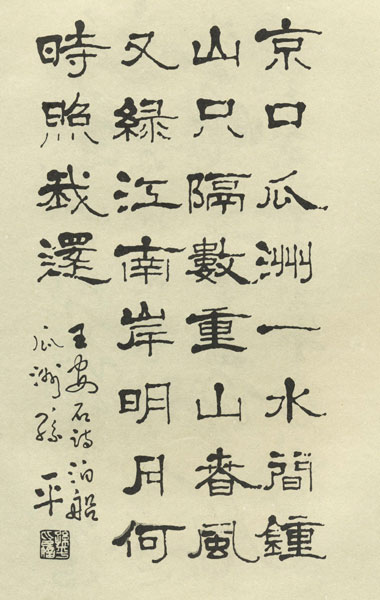 京口瓜洲一水間鍾
山只隔數重山春風
又綠江南岸明月何
時照我還
王安石詩泊船
瓜洲 孫一平